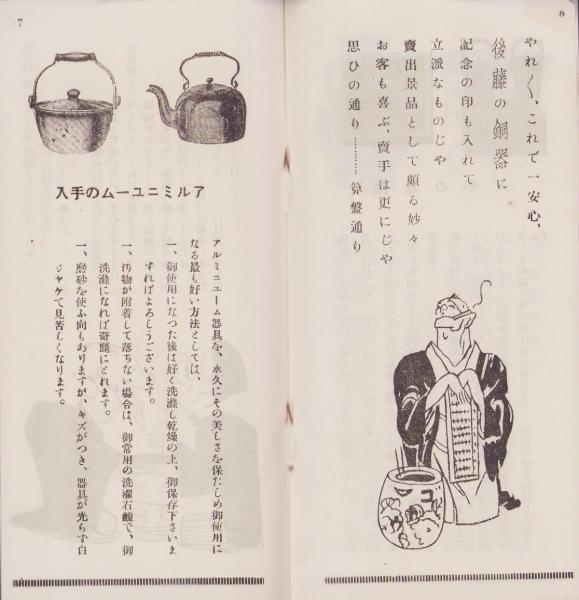 6
やれ〱、これで一安心、
後藤の銅器に
記念の印も入れて
立派なものじやの
賣出景品として頗る妙々
お客も喜ぶ、賣手は更にじや
思ひの通り………算盤通り
ゴ
7
アルミニユームの手入
アルミニユーム器具を、永久にその美しさを保たしめ御使用に
なる最も好い方法としては、
一、御使用になつた後は好く洗滌し乾燥の上、御保存下さいま
すればよろしうございます。
一、汚物が附着して落ちない場合は、御常用の洗濯石鹼で、御
洗滌になれば奇麗にとれます。
一、磨砂を使ふ向もありますが、キズがつき、器具が光らず白
ジヤケて見苦しくなります。